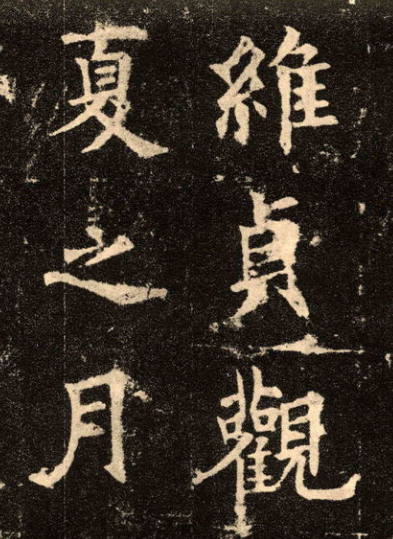 維貞觀
夏之月